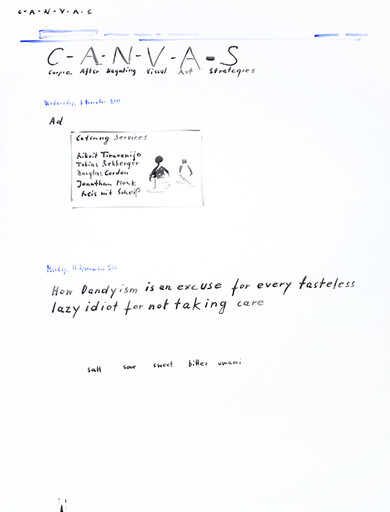 C-A-N-V-A-S
C-A-N-V-A-S
After Negating Visual Art Strategies
Ad
Catering Services
Rikrit Tiravanija
Tobias Rehberger
Douglas Gordon
Jonathan Monk
Reis mit Scheiß
How Dandyism is an excuse for every tasteless
lazy idiot for not taking care
salt sour sweet bitter umami